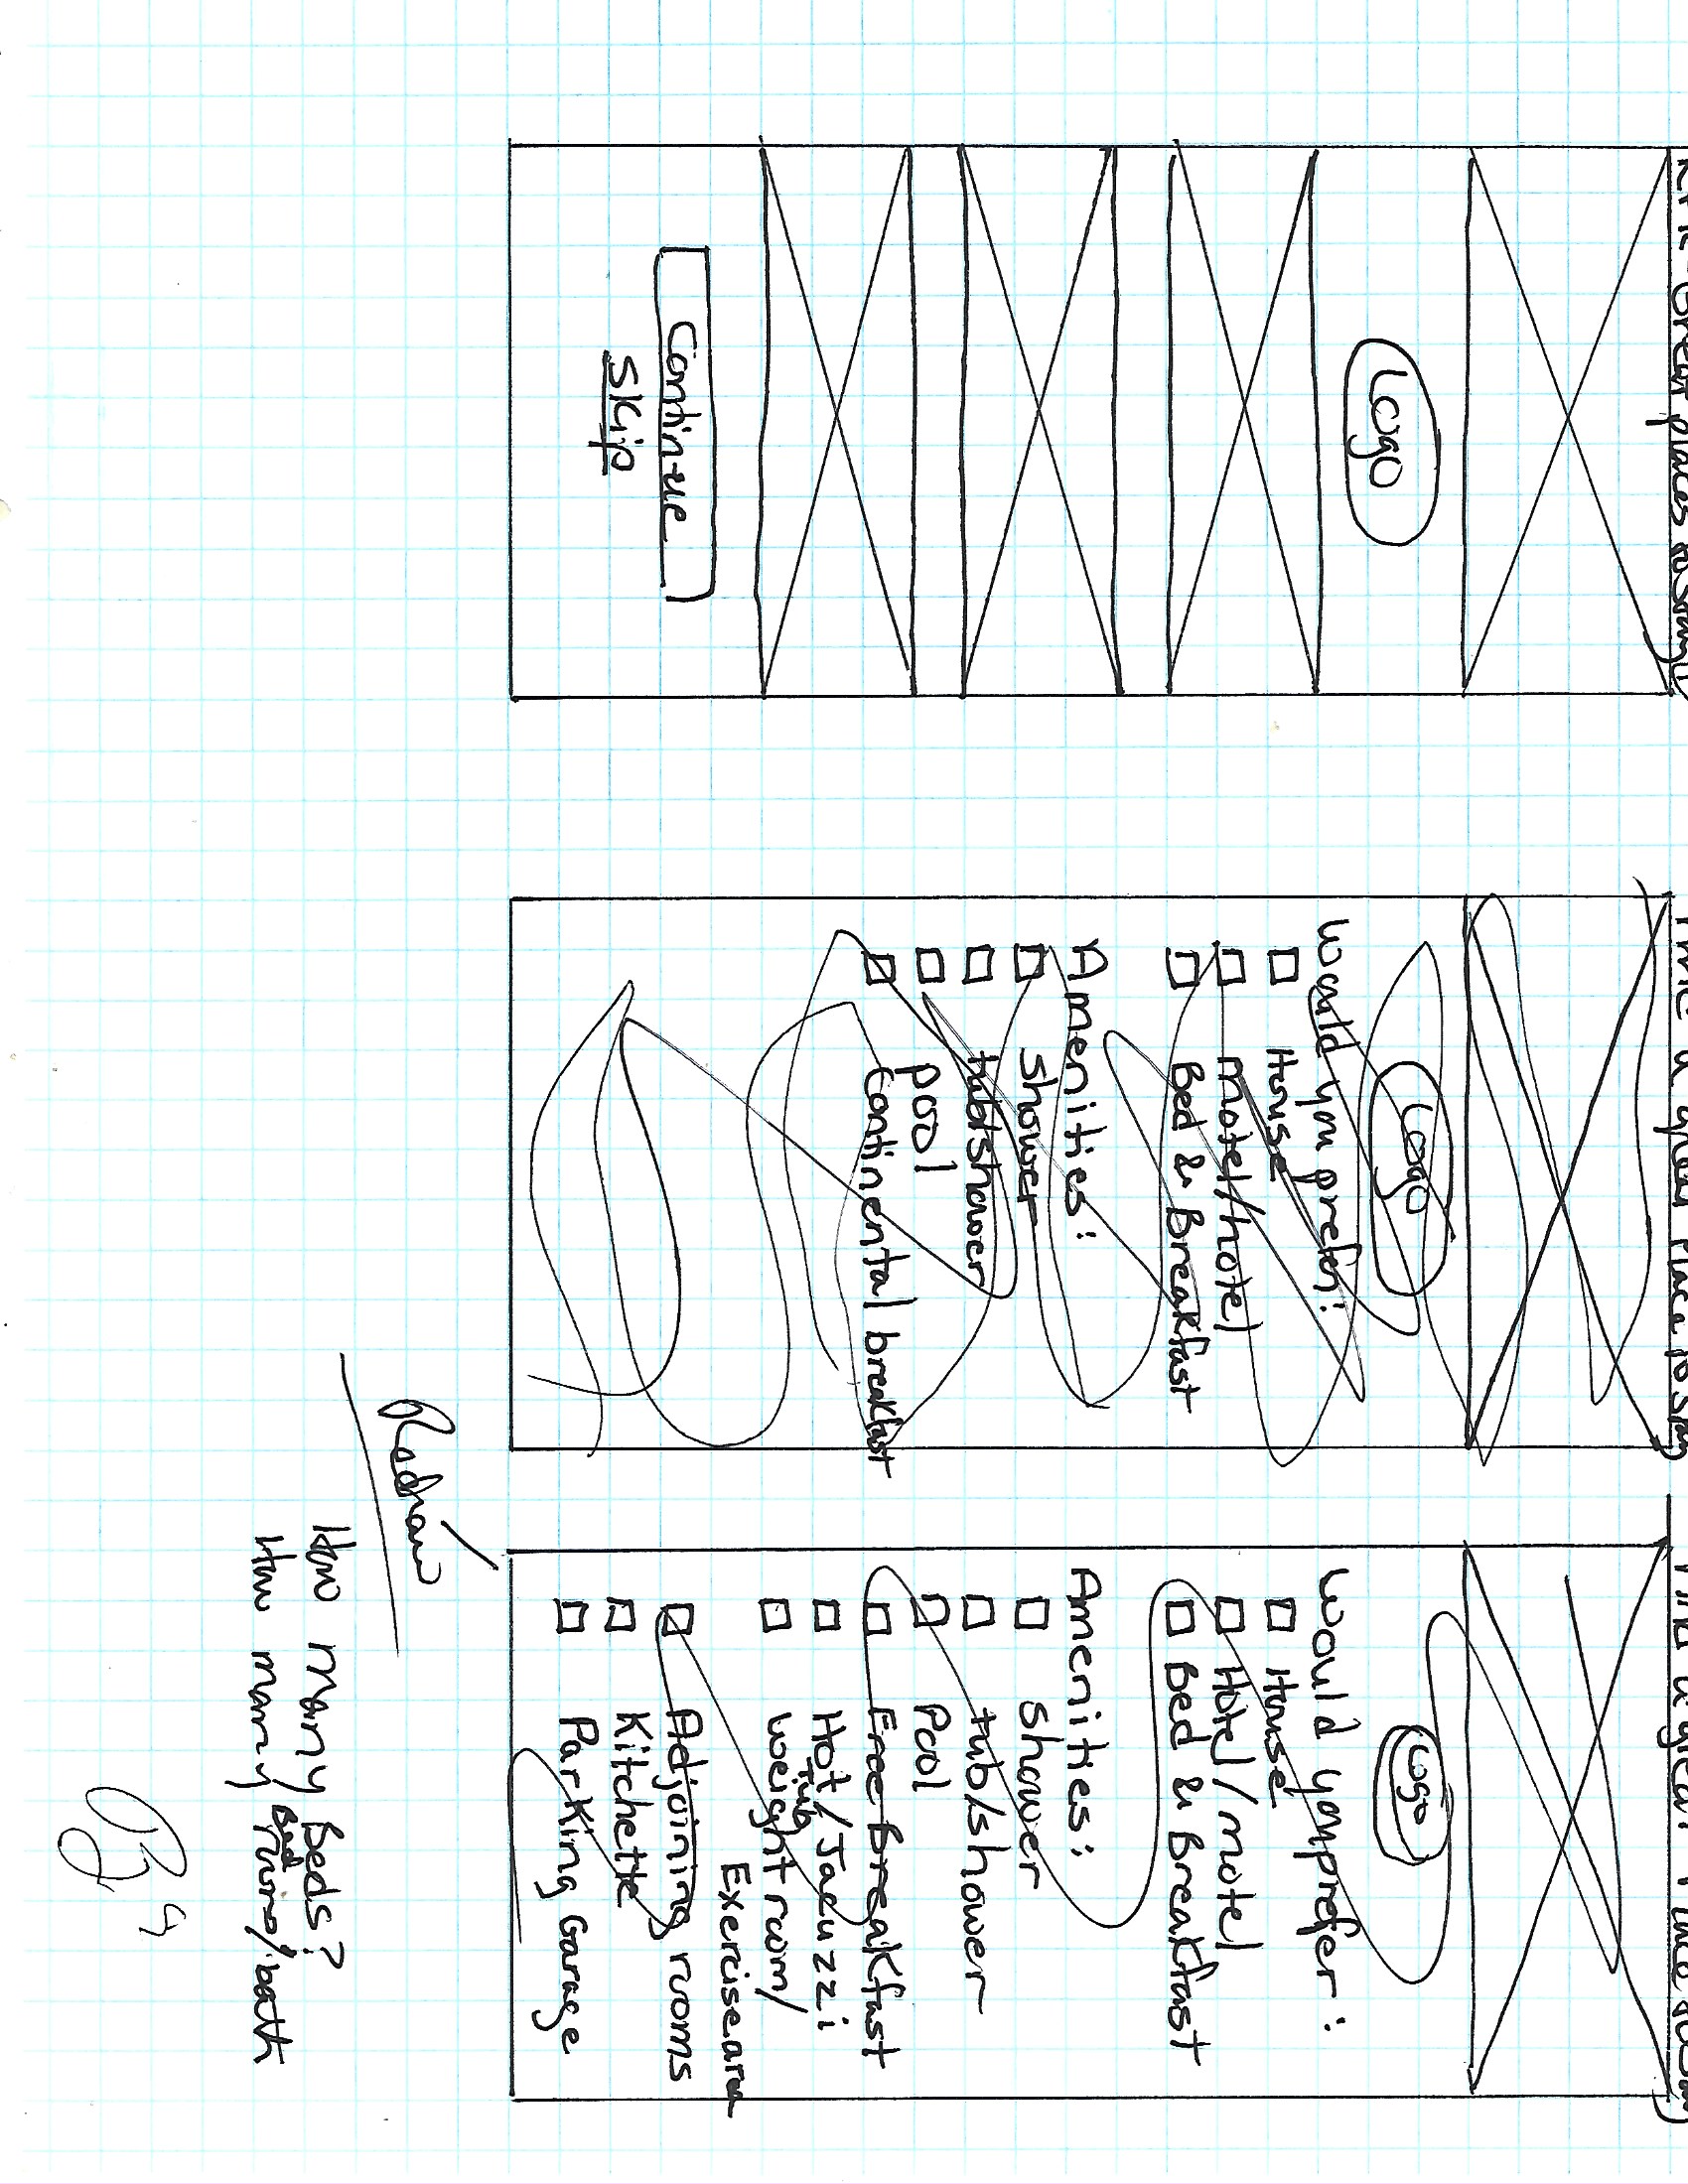 great places
Logo
Continue
Skip
Find a great Place to stay
Logo
Would you prefer:
House
motel/hotel
Bed & Breakfast
Amenities:
Shower
tub/shower
Pool
Continental breakfast
Find a great Place to stay
Logo
Would you prefer:
House
Hotel/motel
Bed & Breakfast
Amenities:
Shower
tub/shower
Pool
Free breakfast
Hot/Jacuzzi
Tub
weight room/
Exercise area
Adjoining rooms
Kitchette
Parking Garage
How many Beds?
How many Bed rooms/bath